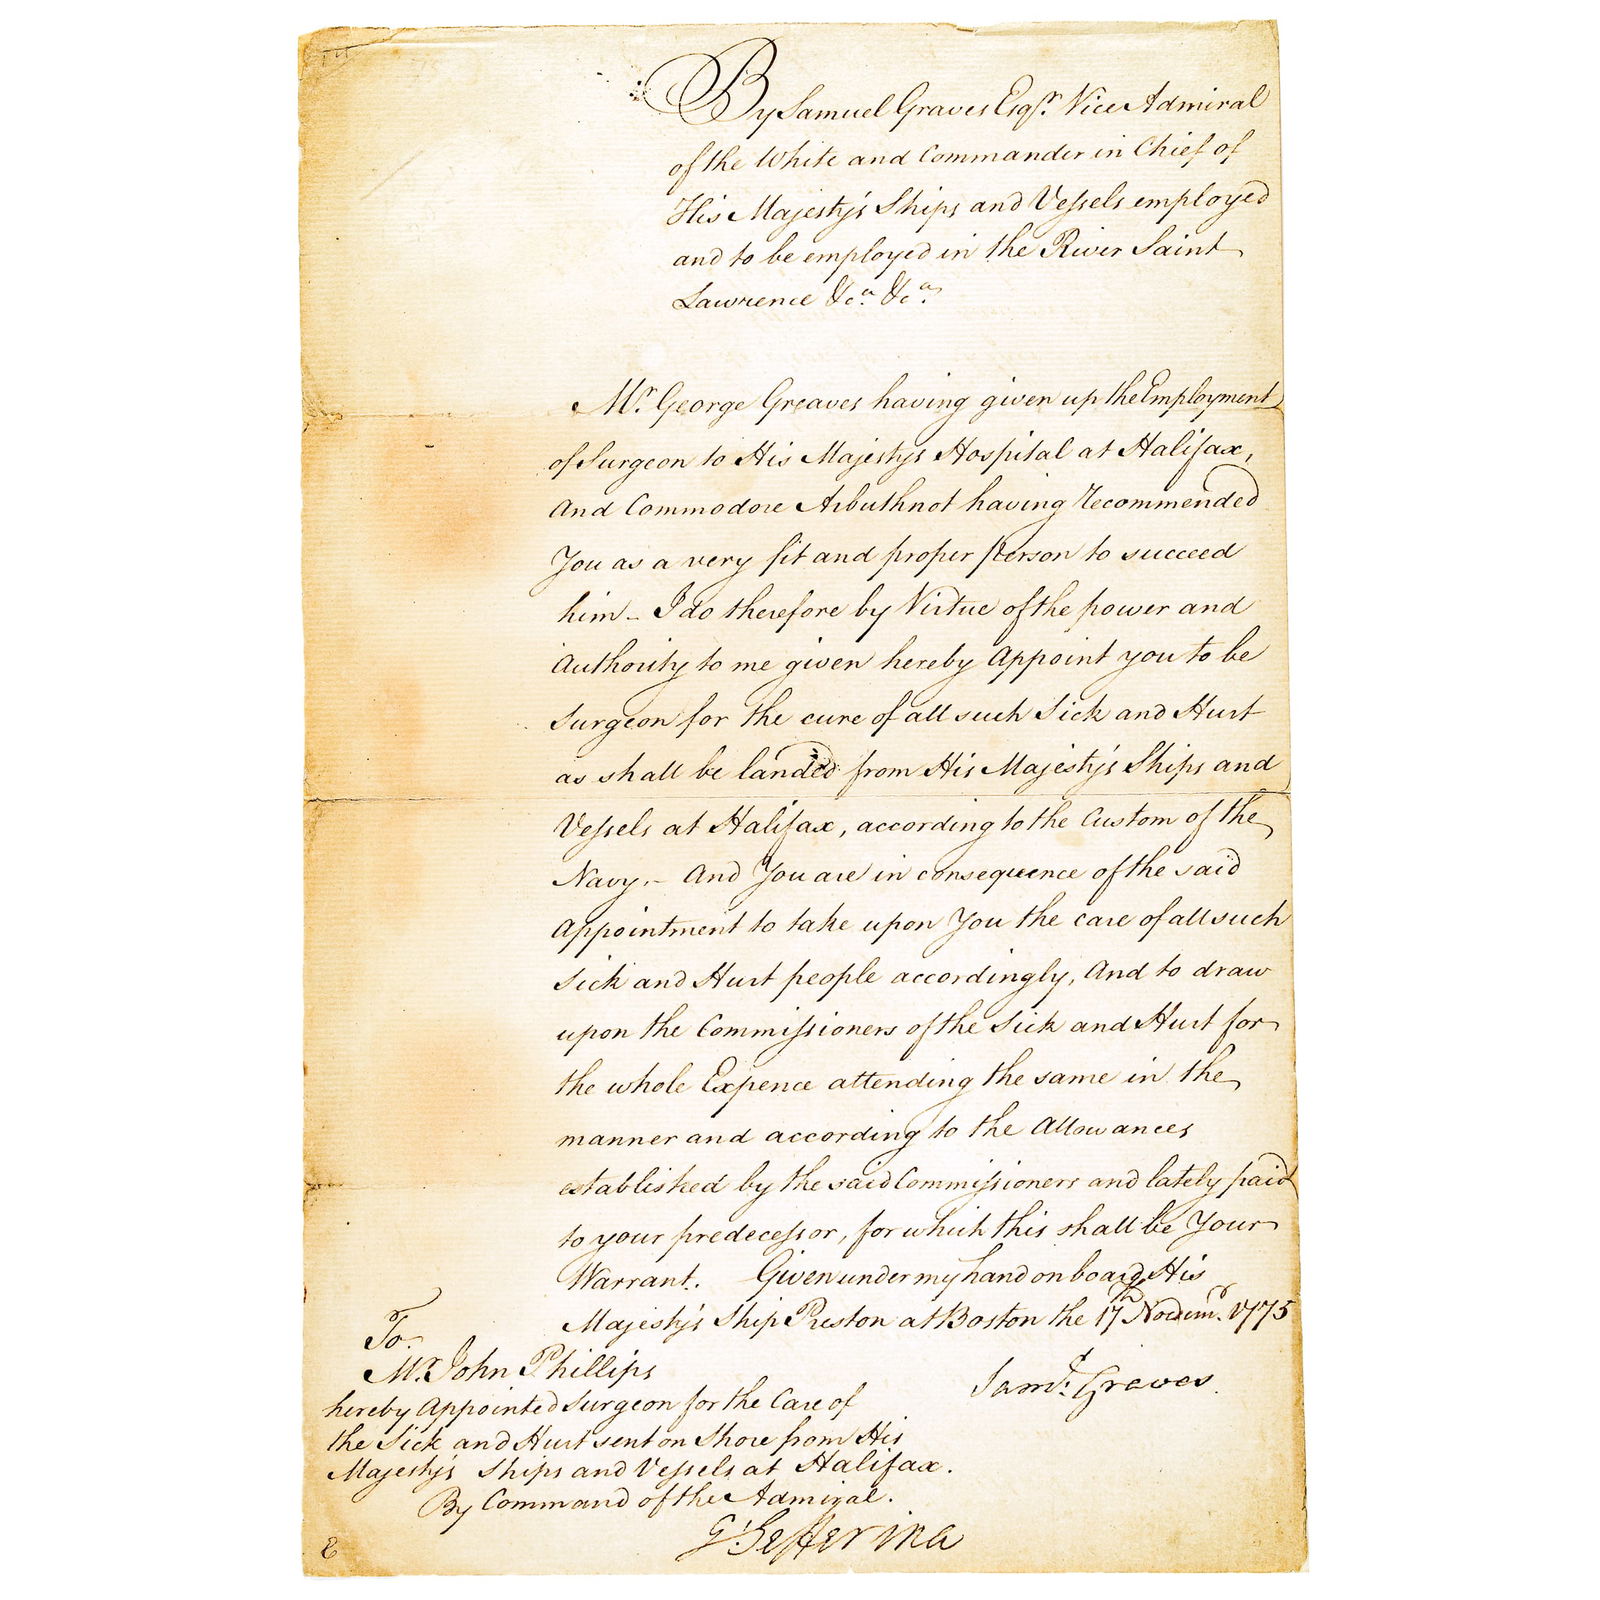 By Samuel Graves Esqr. Vice Admiral
of the White and Commander in Chief of
His Majesty's Ships and Vessels employed
and to be employed in the River Saint
Lawrence &c.a &c.a
Mr. George Greaves having given up the Employment
of Surgeon to His Majestys Hospital at Halifax,
And Commodore Arbuthnot having recommended
You as a very fit and proper person to succeed
him - I do therefore by Virtue of the power and
Authority to me given hereby Appoint you to be
Surgeon for the cure of all such Sick and Hurt
as shall be landed from His Majesty's Ships and
Vessels at Halifax, according to the Custom of the
Navy. - And You are in consequence of the said
Appointment to take upon You the care of all such
Sick and Hurt people accordingly, And to draw
upon the Commissioners of the Sick and Hurt for
the whole Expence attending the same in the
manner and according to the Allowances
established by the said Commissioners and lately paid
to your predecessor, for which this shall be Your
Warrant. Given under my hand on board His
Majesty's Ship Preston at Boston the 17th Novemr. 1775
Saml: Graves.
To
Mr. John Phillips
hereby Appointed Surgeon for the Care of
the Sick and Hurt sent on Shore from His
Majesty's Ships and Vessels at Halifax.
By Command of the Admiral.
G: Gefferina